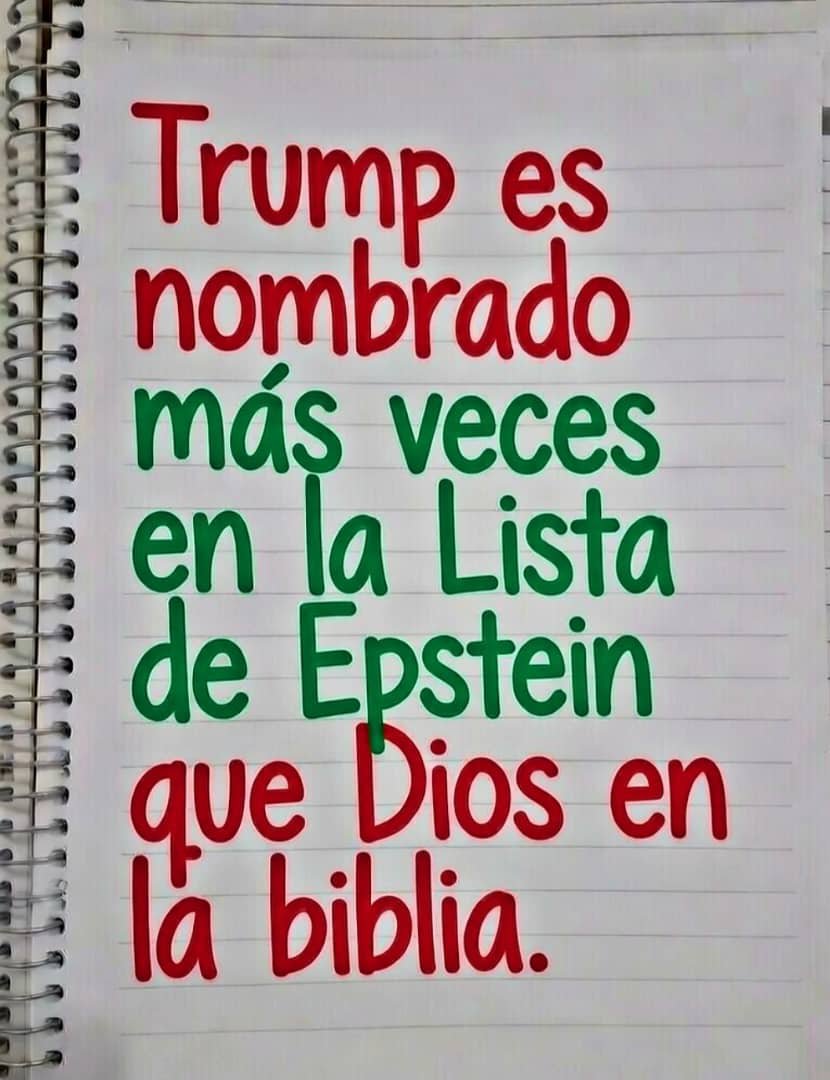 Trump es
nombrado
más veces
en la Lista
de Epstein
que Dios en
la biblia.